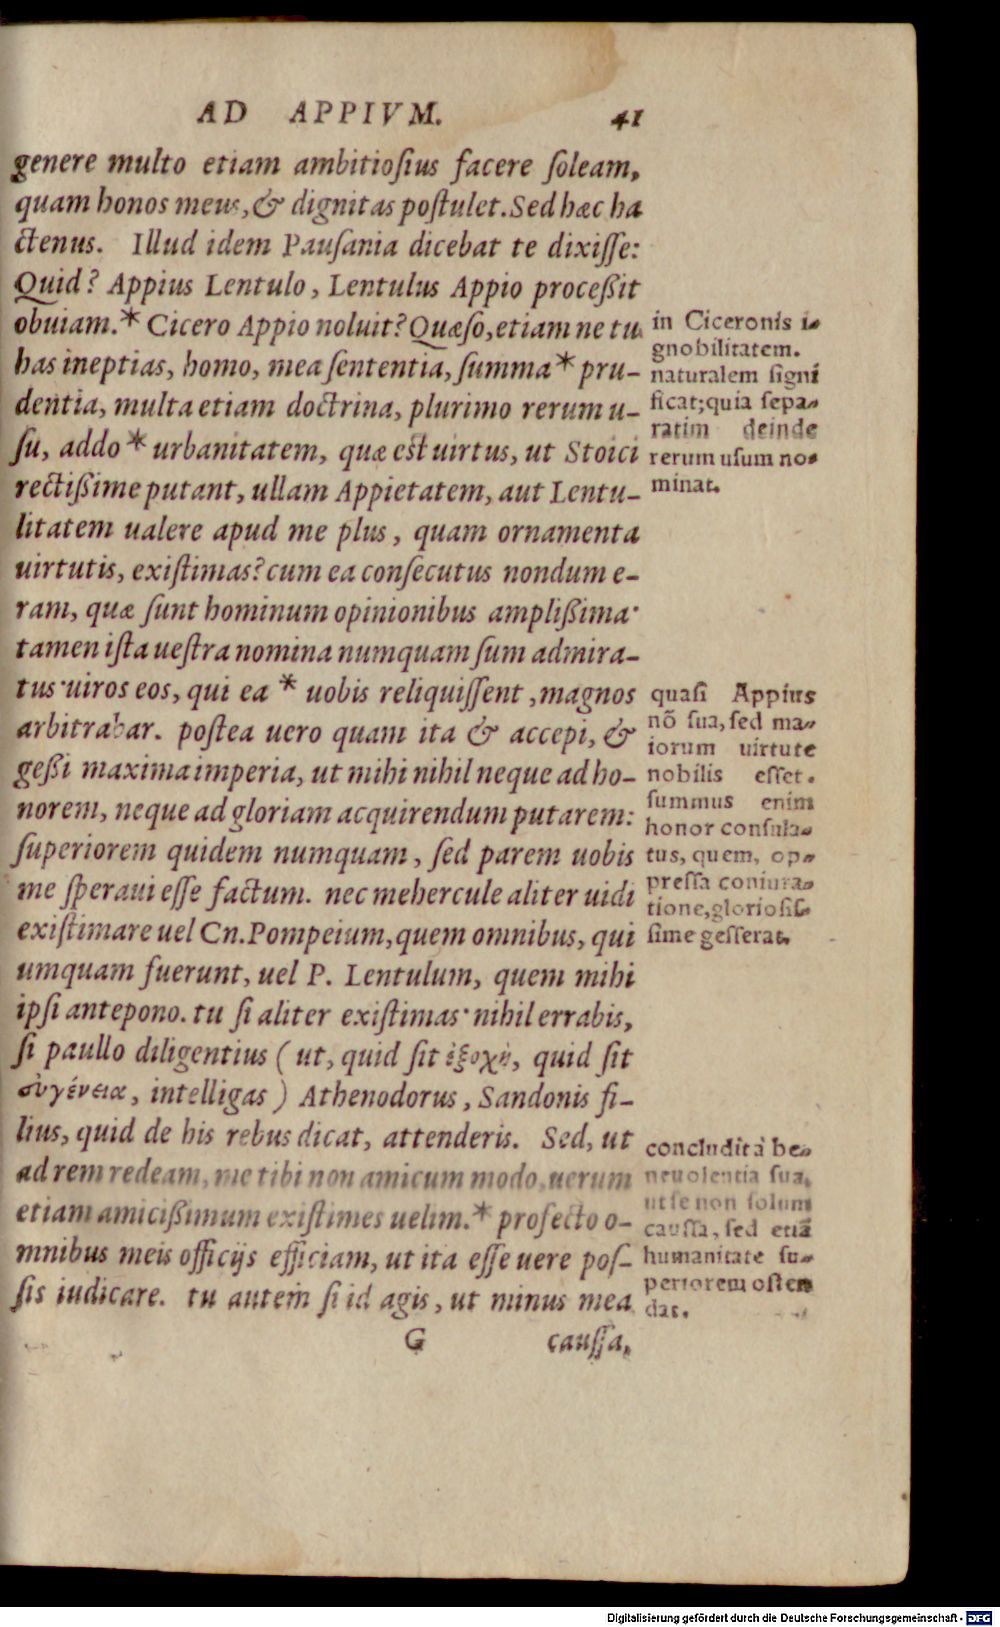 AD APPIVM. 41
genere multo etiam ambitiosius facere soleam,
quam honos meus, & dignitas postulet. Sed hæc ha
ctenus. Illud idem Pausania dicebat te dixisse:
Quid? Appius Lentulo, Lentulus Appio proceßit
obuiam.* Cicero Appio noluit? Quæso, etiam ne tu
has ineptias, homo, mea sententia, summa * pru-
dentia, multa etiam doctrina, plurimo rerum u-
su, addo * urbanitatem, quæ est uirtus, ut Stoici
rectißime putant, ullam Appietatem, aut Lentu-
litatem ualere apud me plus, quam ornamenta
uirtutis, existimas? cum ea consecutus nondum e-
ram, quæ sunt hominum opinionibus amplißima·
tamen ista uestra nomina numquam sum admira-
tus· uiros eos, qui ea * uobis reliquissent, magnos
arbitrabar. postea uero quam ita & accepi, &
geßi maxima imperia, ut mihi nihil neque ad ho-
norem, neque ad gloriam acquirendum putarem:
superiorem quidem numquam, sed parem uobis
me speraui esse factum. nec mehercule aliter uidi
existimare uel Cn. Pompeium, quem omnibus, qui
umquam fuerunt, uel P. Lentulum, quem mihi
ipsi antepono. tu si aliter existimas· nihil errabis,
si paullo diligentius (ut, quid sit ἐξοχὴ, quid sit
συγένεια, intelligas) Athenodorus, Sandonis fi-
lius, quid de his rebus dicat, attenderis. Sed, ut
ad rem redeam, me tibi non amicum modo, uerum
etiam amicißimum existimes uelim.* profecto o-
mnibus meis officijs efficiam, ut ita esse uere pos-
sis iudicare. tu autem si id agis, ut minus mea
G caussa,
in Ciceronis i-
gnobilitatem.
naturalem signi
ficat; quia sepa-
ratim deinde
rerum usum no-
minat.
quasi Appius
nō sua, sed ma-
iorum uirtute
nobilis esset.
summus enim
honor consula-
tus, quem, op-
pressa coniura-
tione, gloriosis-
sime gesserat.
concludit à be-
neuolentia sua,
ut se non solum
caussa, sed etiā
humanitate su-
periorem osten
dat.
Digitalisierung gefördert durch die Deutsche Forschungsgemeinschaft - DFG